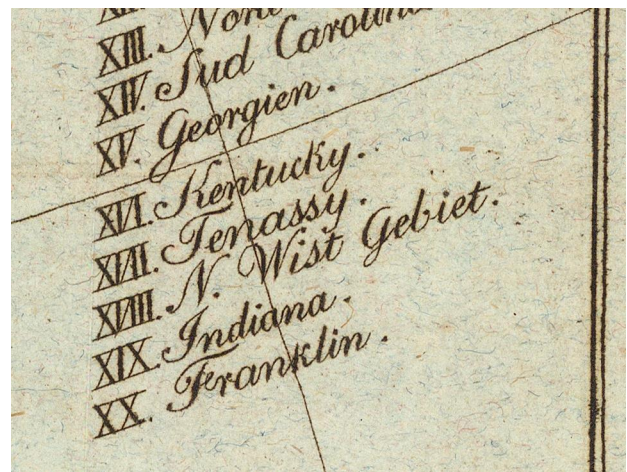 XIII. Nord
XIV. Sud Carolina
XV. Georgien.
XVI. Kentucky.
XVII. Tenassy.
XVIII. N. Wist Gebiet.
XIX. Indiana.
XX. Franklin.